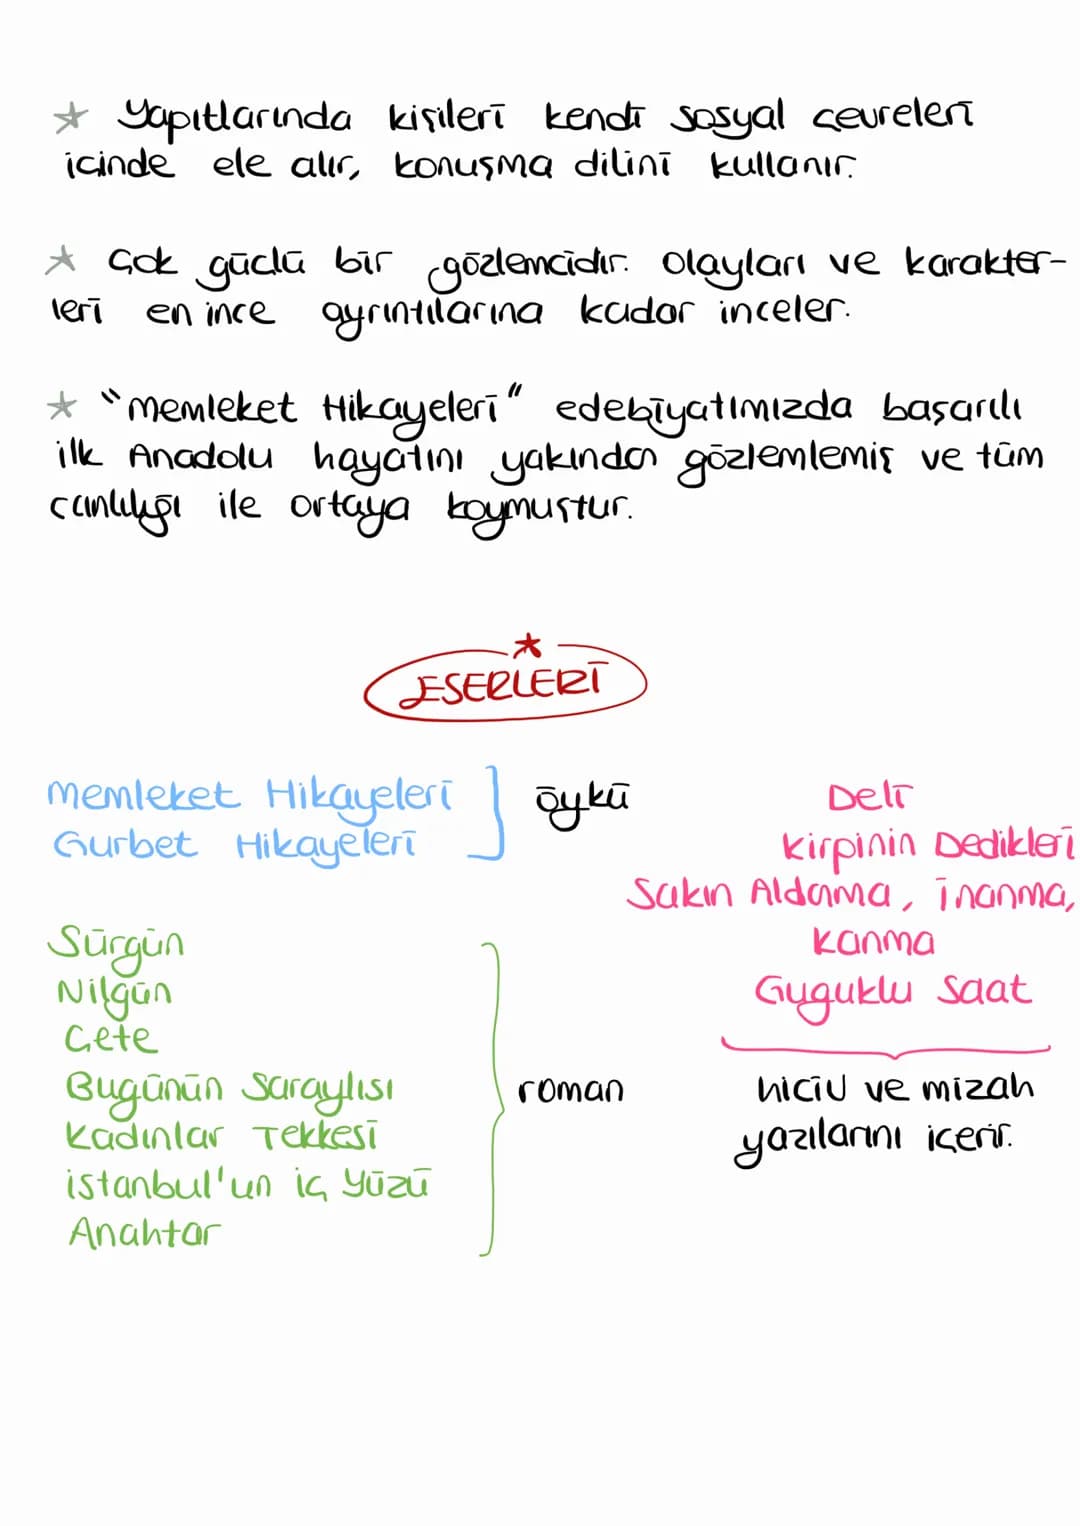 * Yapıtlarında kişileri kendi sosyal çevreleri
içinde ele alır, konuşma dilini kullanır.
* Çok güçlü bir gözlemcidir. Olayları ve karakter-
leri en ince ayrıntılarına kadar inceler.
* "Memleket Hikayeleri" edebiyatımızda başarılı
ilk Anadolu hayatını yakından gözlemlemiş ve tüm
canlılığı ile ortaya koymuştur.
*
ESERLERİ
Memleket Hikayeleri
Gurbet Hikayeleri
öykü
Sürgün
Nilgün
Çete
Bugünün Saraylısı
Kadınlar Tekkesi
istanbul'un iç Yüzü
Anahtar
roman
Deli
Kirpinin Dedikleri
Sakın Aldanma, İnanma,
Kanma
Guguklu Saat
hiciv ve mizah
yazılarını içerir.